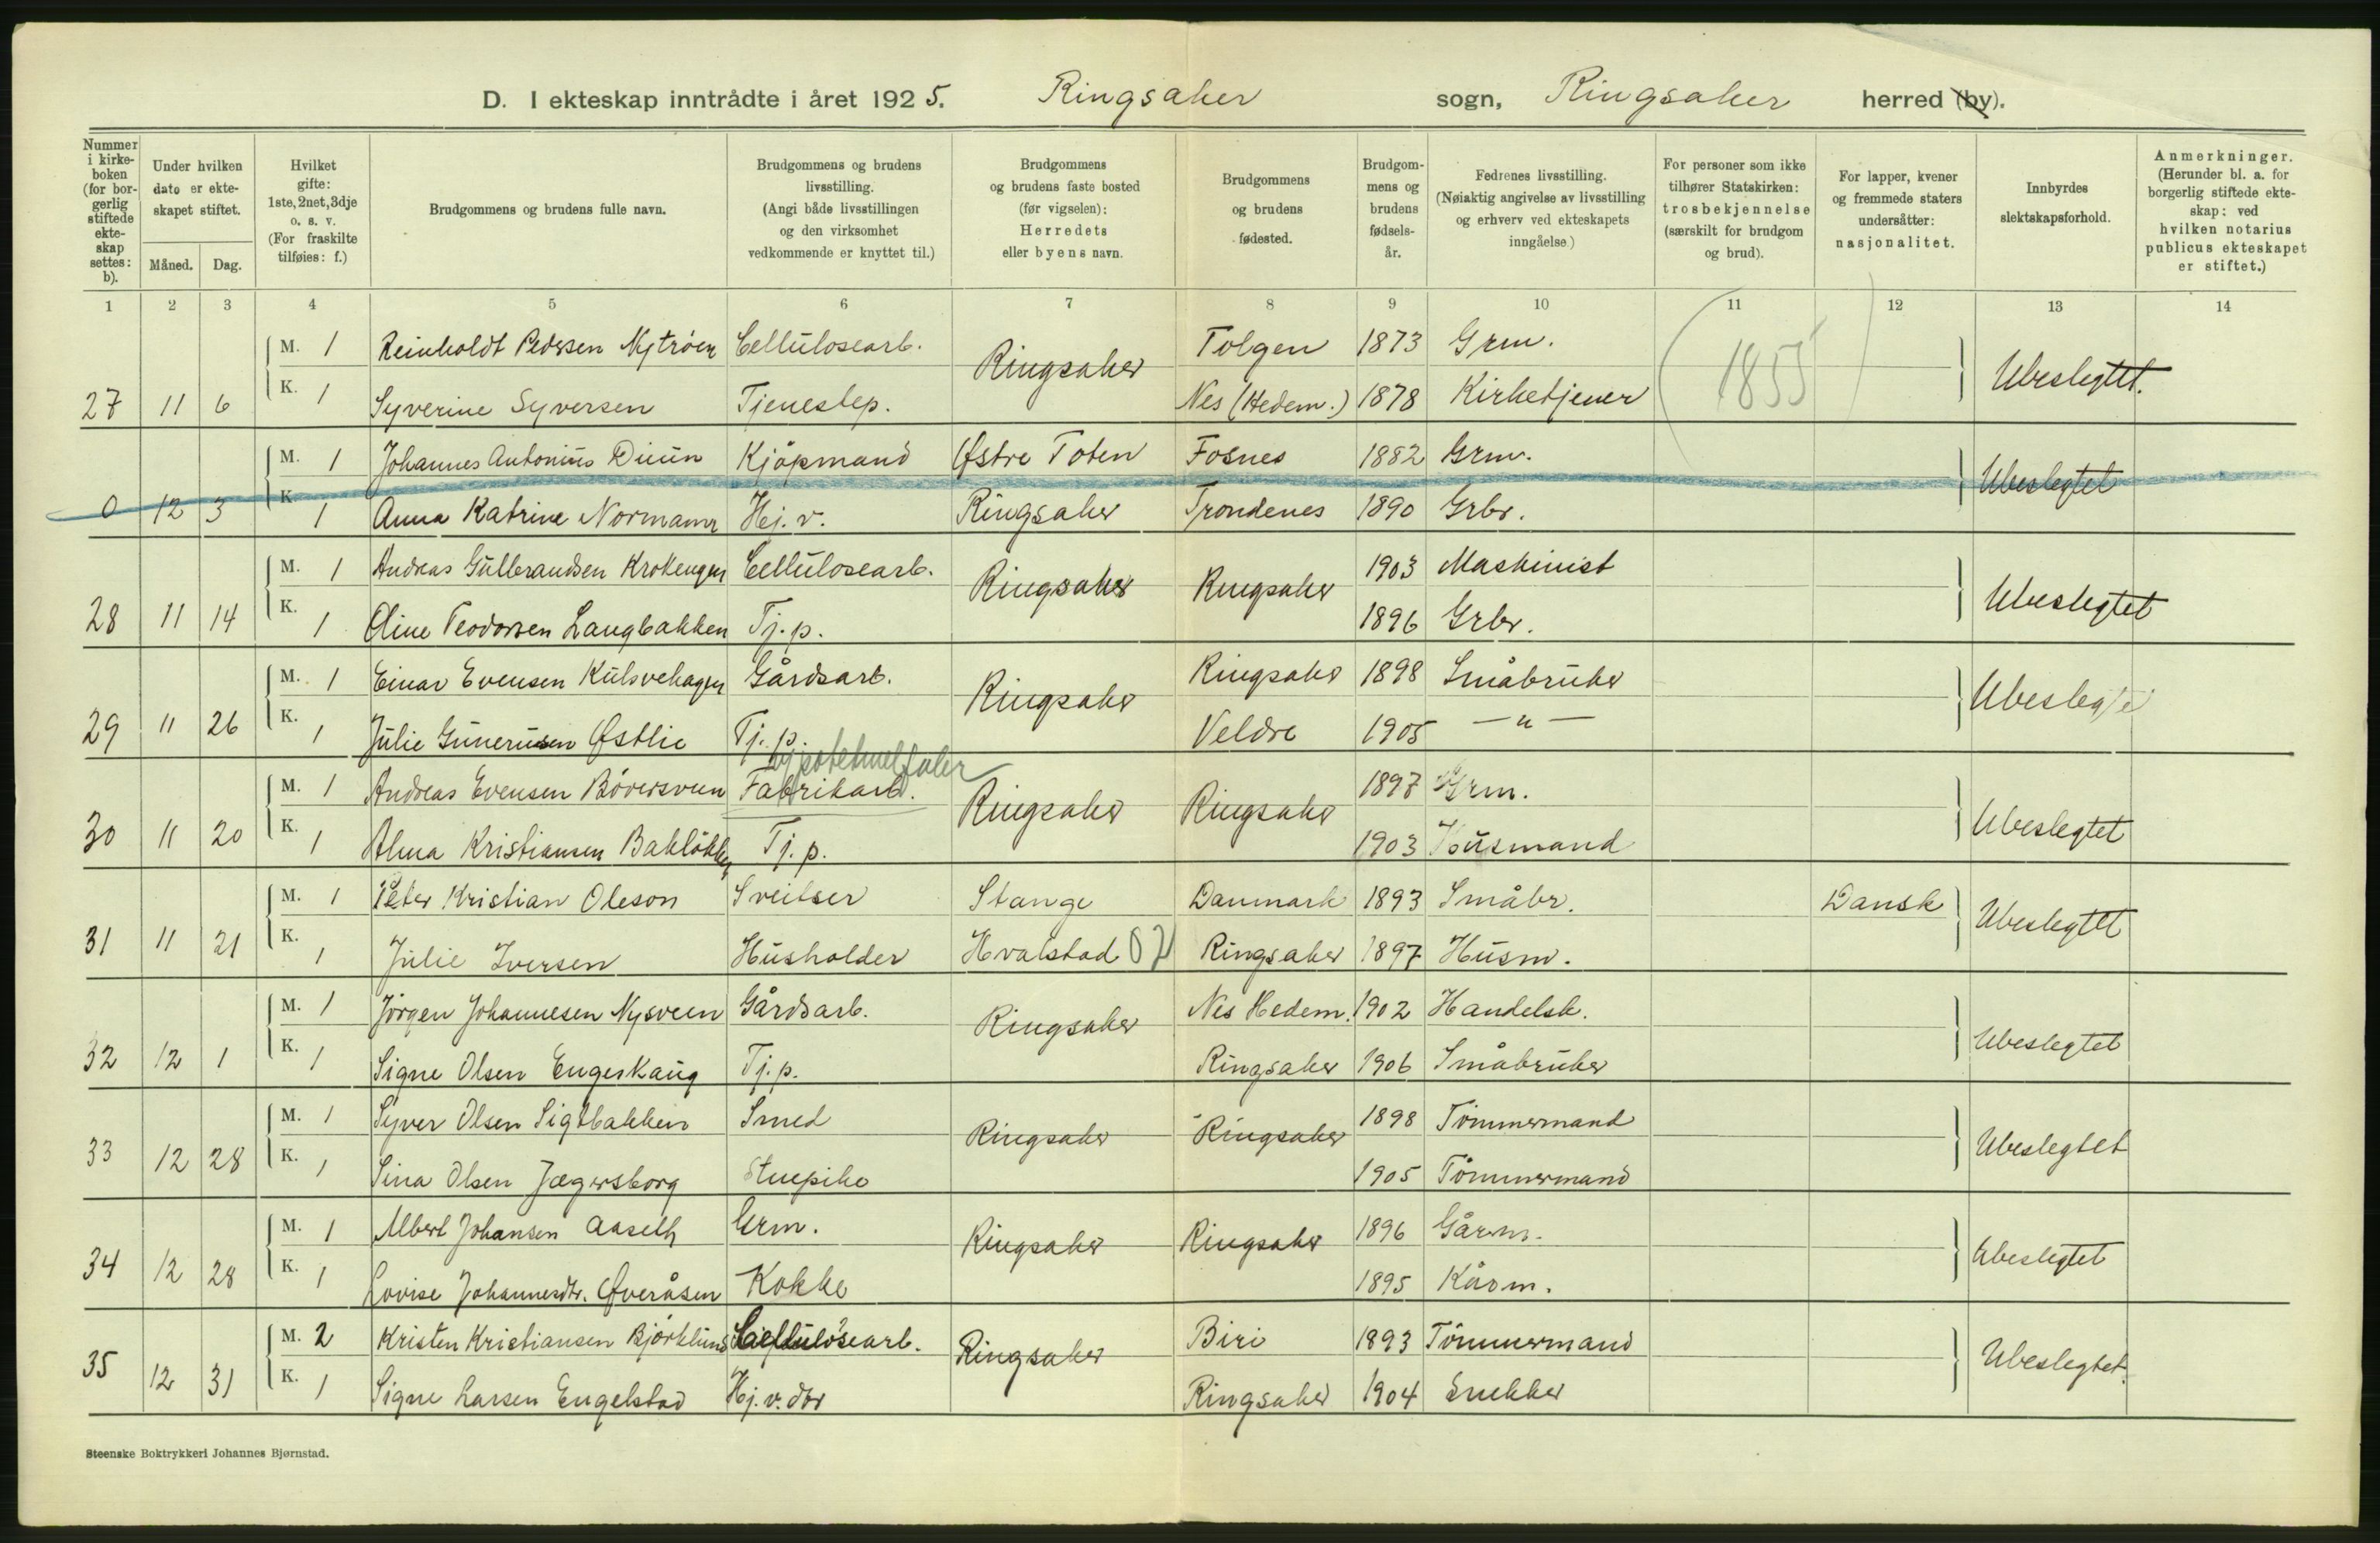 D. I ekteskap inntrådte i året 1925. Ringsaker sogn, Ringsaker herred (by).
Nummer i kirkeboken (for borgerlig stiftede ekteskap settes: b).
Under hvilken dato er ekteskapet stiftet.
Måned. Dag.
Hvilket gifte: 1ste, 2net, 3dje o. s. v. (For fraskilte tilføies: f.)
Brudgommens og brudens fulle navn.
Brudgommens og brudens livsstilling. (Angi både livsstillingen og den virksomhet vedkommende er knyttet til.)
Brudgommens og brudens faste bosted (før vigselen): Herredets eller byens navn.
Brudgommens og brudens fødested.
Brudgommens og brudens fødselsår.
Fedrenes livsstilling. (Nøiaktig angivelse av livsstilling og erhverv ved ekteskapets inngåelse.)
For personer som ikke tilhører Statskirken: trosbekjennelse (særskilt for brudgom og brud).
For lapper, kvener og fremmede staters undersåtter: nasjonalitet.
Innbyrdes slektskapsforhold.
Anmerkninger. (Herunder bl. a. for borgerlig stiftede ekteskap: ved hvilken notarius publicus ekteskapet er stiftet.)
1 2 3 4 5 6 7 8 9 10 11 12 13 14
M. 1 Reinholdt Pedersen Nytrøen Cellulosearb. Ringsaker Tolgen 1873 Grm. 1855 Ubeslegtet.
27 11 6 K. 1 Syverine Syversen Tjenestep. Nes (Hedem.) 1878 Kirketjener
M. 1 Johannes Antonius Duun Kjøpmand Østre Toten Fosnes 1882 Grm. Ubeslegtet
0 12 3 K. 1 Anna Katrine Normann Hj. v. Ringsaker Trondenes 1890 Grbr.
M. 1 Andreas Gulbrandsen Krokengen Cellulosearb. Ringsaker Ringsaker 1903 Maskinist Ubeslegtet
28 11 14 K. 1 Oline Teodorsen Langbakken Tj. p. 1896 Grbr.
M. 1 Einar Evensen Kulsvehagen Gårdsarb. Ringsaker Ringsaker 1898 Småbruker Ubeslegtet
29 11 26 K. 1 Julie Gunerusen Østlie Tj. p. Veldre 1905 — " —
M. 1 Andreas Evensen Böversveen Fabrikarb. Ringsaker Ringsaker 1897 Grm. Ubeslegtet
30 11 20 K. 1 Alma Kristiansen Bakløkken Tj. p. 1903 Husmand
M. 1 Peter Kristian Oleson Sveitser Stange Danmark 1893 Småbr. Dansk Ubeslegtet
31 11 21 K. 1 Julie Iversen Husholder Hvalstad Ringsaker 1897 Husm.
M. 1 Jørgen Johannesen Nysveen Gårdsarb. Ringsaker Nes Hedem. 1902 Handelsb. Ubeslegtet
32 12 1 K. 1 Signe Olsen Engerskaug Tj. p. Ringsaker 1906 Småbruker
M. 1 Syver Olsen Sigtbakken Smed Ringsaker Ringsaker 1898 Tömmermand Ubeslegtet
33 12 28 K. 1 Sina Olsen Jægersborg Stuepike 1905 Tömmermand
M. 1 Albert Johansen Aaseth Grm. Ringsaker Ringsaker 1896 Gårm. Ubeslegtet
34 12 28 K. 1 Lovise Johannesdtr. Øveråsen Kokke 1895 Kårm.
M. 2 Kristen Kristiansen Björklund Cellulosearb. Ringsaker Biri 1893 Tömmermand Ubeslegtet.
35 12 31 K. 1 Signe Larsen Engelstad Hj. v. dtr Ringsaker 1904 Snekker
Steenske Boktrykkeri Johannes Bjørnstad.